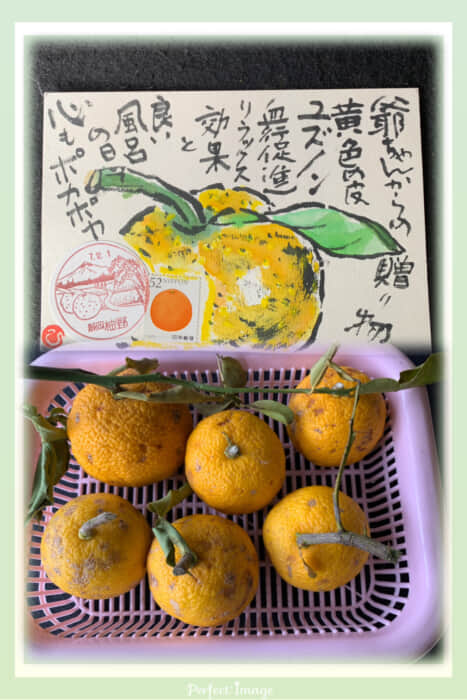 爺ちゃんからの贈り物
黄色の皮
ユズノン
血行促進
リラックス
効果
と
良い
風呂
の日
心もポカポカ
7.2.1
静岡裾野
52 NIPPON
日本郵便
Perfect Image